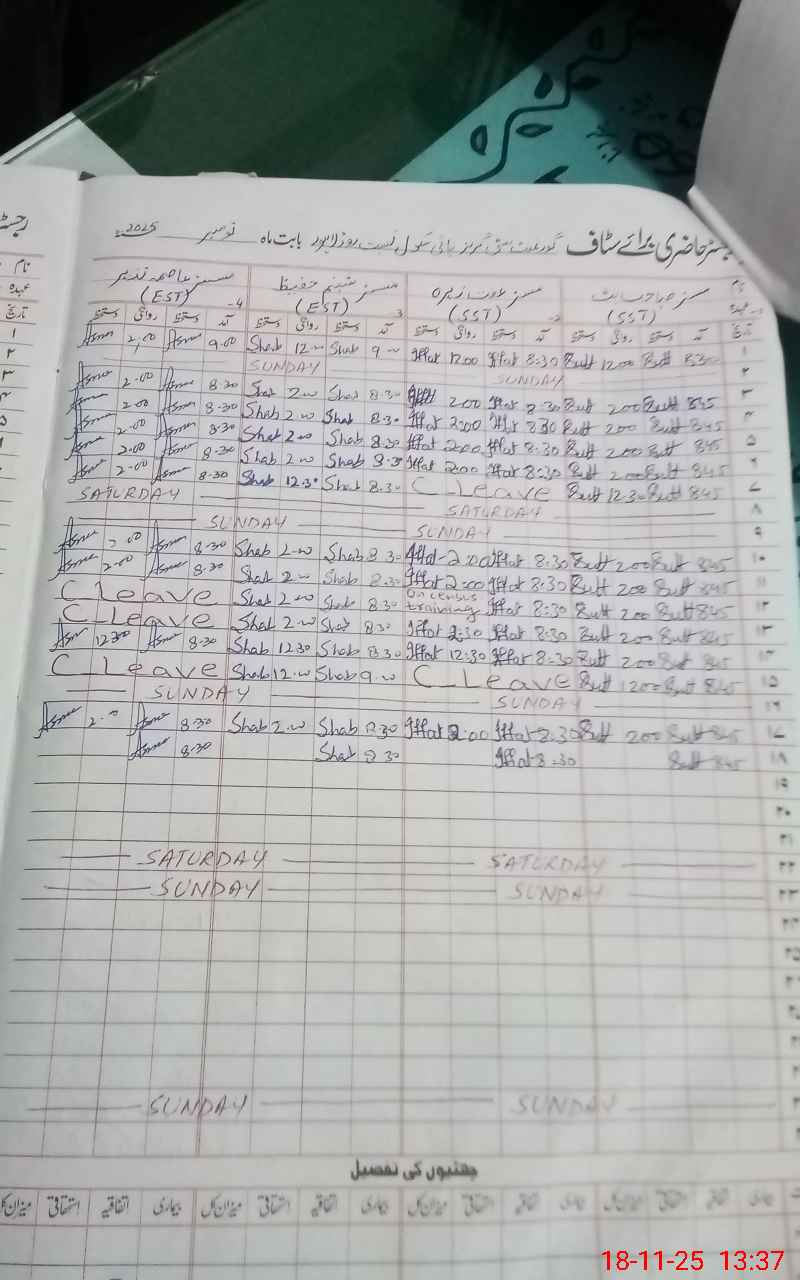 رجسٹر حاضری برائے سٹاف گورنمنٹ سٹی گرلز ہائی سکول نسبت روڈ لاہور بابت ماہ نومبر 2025
نام مسز عفت زہرہ مسز شبنم حفیظ مسز عاصمہ نذیر
عہدہ (SST) (SST) -2 (EST) -3 (EST) -4
تاریخ آمد دستخط روانگی دستخط آمد دستخط روانگی دستخط آمد دستخط روانگی دستخط آمد دستخط روانگی دستخط
۱ 8:30 Butt 12:00 Butt 8:30 Iffat 12:00 Iffat 9 Shab 12 Shab 9.00 Asma 2.00 Asma
۲ SUNDAY SUNDAY
۳ 845 Butt 200 Butt 8:30 Iffat 2:00 8.30 Shab 2.00 Shab 8.30 Asma 2.00 Asma
۴ 845 Butt 200 Butt 8:30 Iffat 2:00 Iffat 8.30 Shab 2.00 Shab 8.30 Asma 2.00 Asma
۵ 845 Butt 200 Butt 8:30 Iffat 2:00 Iffat 8.30 Shab 2.00 Shab 8.30 Asma 2.00 Asma
۶ 845 Butt 200 Butt 8:30 Iffat 2:00 Iffat 8.30 Shab 2.00 Shab 8.30 Asma 2.00 Asma
۷ 845 Butt 12.30 Butt C Leave 8.30 Shab 12.30 Shab 8.30 Asma 2.00 Asma
۸ SATURDAY SATURDAY
۹ SUNDAY SUNDAY
۱۰ 845 Butt 200 Butt 8.30 Iffat 2:00 Iffat 8.30 Shab 2.00 Shab 8.30 Asma 2.00 Asma
۱۱ 845 Butt 200 Butt 8.30 Iffat 2:00 Iffat 8.30 Shab 2.00 Shab 8.30 Asma 2.00 Asma
۱۲ 845 Butt 200 Butt 8:30 Iffat On census training 8.30 Shab 2.00 Shab C Leave
۱۳ 845 Butt 200 Butt 8:30 Iffat 2:30 Iffat 8.30 Shab 2.00 Shab C Leave
۱۴ 845 Butt 200 Butt 8:30 Iffat 12:30 Iffat 8.30 Shab 12.30 Shab 8.30 Asma 12.30 Asma
۱۵ 845 Butt 1200 Butt C Leave 9.00 Shab 12.00 Shab C Leave
۱۶ SUNDAY SUNDAY
۱۷ 845 Butt 200 Butt 8.30 Iffat 2:00 Iffat 8.30 Shab 2.00 Shab 8.30 Asma 2.00 Asma
۱۸ 845 Butt 8.30 Iffat 8.30 Shab 8.30 Asma
۱۹
۲۰
۲۱
۲۲ SATURDAY SATURDAY
۲۳ SUNDAY SUNDAY
۲۴
۲۵
SUNDAY SUNDAY
چھٹیوں کی تفصیل
بیماری اتفاقیہ استحقاقی میزان کل بیماری اتفاقیہ استحقاقی میزان کل بیماری اتفاقیہ استحقاقی میزان کل بیماری اتفاقیہ استحقاقی میزان کل
18-11-25 13:37